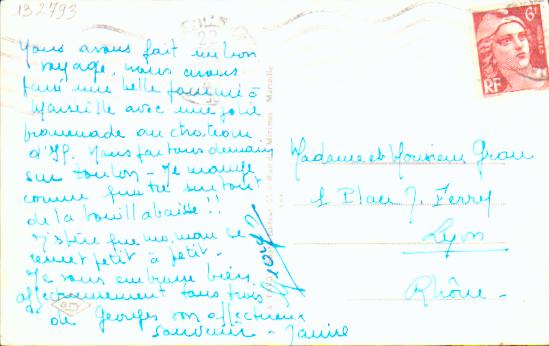 132793
22
6F
RF
Nous avons fait un bon
voyage, nous avons
fait une belle journée à
Marseille avec une jolie
promenade au chateau
d'If. Nous partons demain
sur Toulon - Je mange
comme quatre surtout
de la bouillabaisse !!
J'espère que maman se
remet petit à petit -
Je vous embrasse bien
affectueusement tous trois
de Georges son affectueux
souvenir - Janine
Georges
Madame et Monsieur Gran
1 Place J. Ferry
Lyon
Rhône -
Marseille